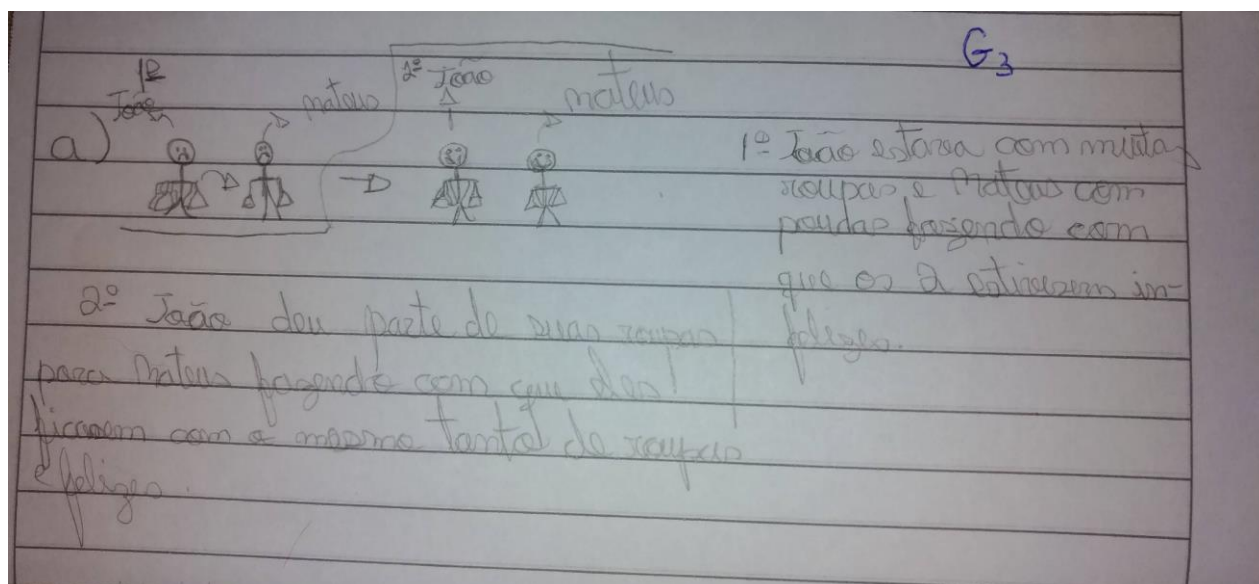 G3
1º
João
mateus
2º João
mateus
a)
1º João estava com muitas
roupas e Mateus com
poucas fazendo com
que os 2 estivessem in-
felizes.
2º João deu parte de suas roupas
para Mateus fazendo com que eles
ficassem com o mesmo tanto de roupas
e felizes.